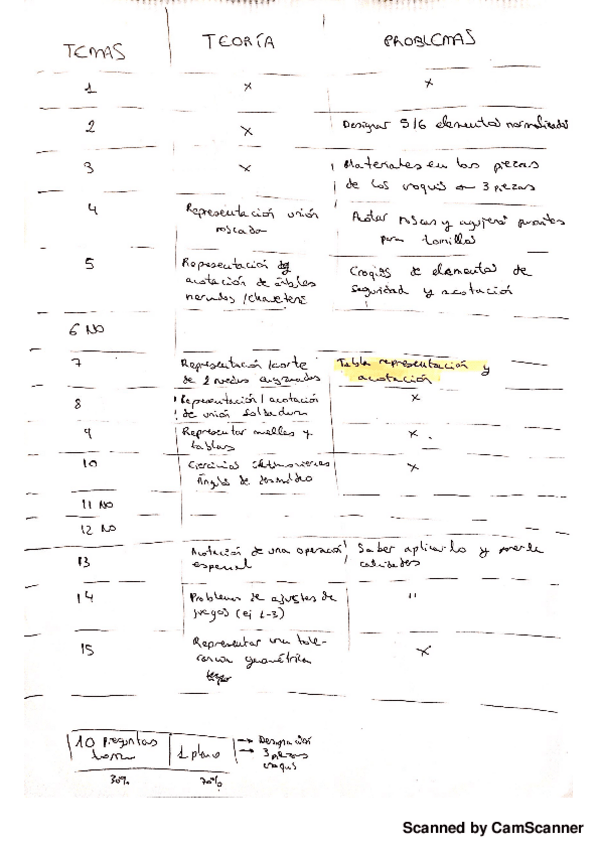 TEMAS TEORÍA PROBLEMAS
1 x x
2 x Designar 5/6 elementos normalizados
3 x Materiales en las piezas
de los croquis 3 piezas
4 Representación unión
roscada
Acotar roscas y agujeros
para tornillos
5 Representación
acotación de árboles
nervados / chavetero
Croquis de elementos de
seguridad y acotación
6 NO
7 Representación / corte
de 2 ruedas engranadas
Tabla representación y
acotación
8 Representación / acotación
de unión soldadura
x
9 Representar muelles y
tablas
x
10 Ejercicios
Ángulo de
x
11 NO
12 NO
13 Acotación de una operación
especial
Saber aplicarlo y
calidades
14 Problemas de ajustes de
juegos (ej 1-3)
"
15 Representar una tole-
rancia geométrica
x
10 preguntas 1 plano → Designación
→ 3 piezas
croquis
30% 70%
Scanned by CamScanner